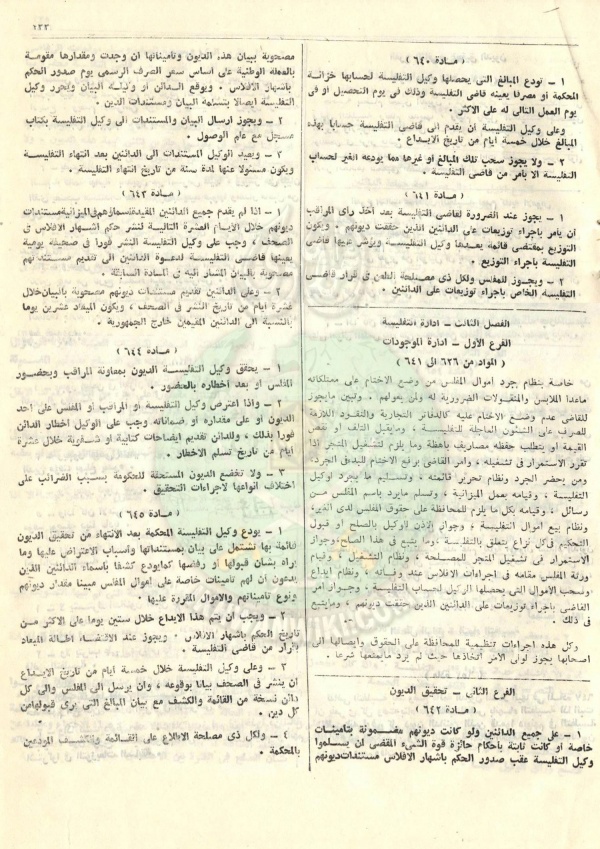 ١٢٢
( مـادة ٦٤٠ )
١ – تودع المبالغ التي يحصلها وكيل التفليسة لحسابها خزانة
المحكمة أو مصرفا يعينه قاضى التفليسة وذلك فى يوم التحصيل أو فى
يوم العمل التالى له على الأكثر .
وعلى وكيل التفليسة أن يقدم الى قاضى التفليسة حسابا بهذه
المبالغ خلال خمسة أيام من تاريخ الايداع .
٢ – ولا يجوز سحب تلك المبالغ أو غيرها مما يودعه الغير لحساب
التفليسة الا بأمر من قاضى التفليسة .
( مـادة ٦٤١ )
١ – يجوز عند الضرورة لقاضى التفليسة بعد أخذ رأى المراقب
أن يأمر باجراء توزيعات على الدائنين الذين حققت ديونهم . ويكون
التوزيع بمقتضى قائمة يعدها وكيل التفليسة ويؤشر عليها قاضى
التفليسة باجراء التوزيع .
٢ – ويجوز للمفلس ولكل ذى مصلحة الطعن فى قرار قاضى
التفليسة الخاص باجراء توزيعات على الدائنين .
الفصل الثالث – ادارة التفليسة
الفرع الأول – ادارة الموجودات
( المواد من ٦٢٦ الى ٦٤١ )
خاصة بنظام جرد أموال المفلس من وضع الأختام على ممتلكاته
ماعدا الملابس والمنقولات الضرورية له ولمن يعولهم . وتبين مايجوز
للقاضى عدم وضع الأختام عليه كالدفاتر التجارية والنقود اللازمة
للصرف على الشئون العاجلة للتفليسة ، ومايقبل التلف أو نقص
القيمة أو يتطلب حفظه مصاريف باهظة وما يلزم لتشغيل المتجر اذا
تقرر الاستمرار فى تشغيله ، وأمر القاضى برفع الأختام لبدء الجرد
ومن يحضر الجرد ونظام تحرير قائمته ، وتسليم ما يجرد لوكيل
التفليسة ، وقيامه بعمل الميزانية ، وتسلم مايرد باسم المفلس مـن
رسائل . وقيامه بكل ما يلزم للمحافظة على حقوق المفلس لدى الغير ،
ونظام بيع أموال التفليسة ، وجواز الاذن لوكيل بالصلح أو قبول
التحكيم فى كل نزاع يتعلق بالتفليسة ، وما يتبع فى هذا الصلح ، وجواز
الاستمرار فى تشغيل المتجر للمصلحة ، ونظام التشغيل ، وقيام
ورثة المفلس مقامه فى اجراءات الافلاس عند وفاته ، ونظام ايداع
وسحب الأموال التى يحصلها الوكيل لحساب التفليسة ، وجواز أمر
القاضى باجراء توزيعات على الدائنين الذين حققت ديونهم ، ومايتبع
فى ذلك .
وكل هذه اجراءات تنظيمية للمحافظة على الحقوق وايصالها الى
أصحابها يجوز لولى الأمر اتخاذها حيث لم يرد مايمنعها شرعا .
الفرع الثانى – تحقيق الديون
( مـادة ٦٤٢ )
١ – على جميع الدائنين ولو كانت ديونهم مضمونة بتأمينات
خاصة أو كانت ثابتة بأحكام حائزة قوة الشىء المقضى أن يسلموا
وكيل التفليسة عقب صدور الحكم باشهار الافلاس مستندات ديونهم
مصحوبة ببيان هذه الديون وتأميناتها ان وجدت ومقدارها مقومة
بالعملة الوطنية على أساس سعر الصرف الرسمى يوم صدور الحكم
باشهار الافلاس . ويوقع الدائن أو وكيله البيان ويحرر وكيل
التفليسة ايصالا بتسلمه البيان ومستندات الدين .
٢ – ويجوز ارسال البيان والمستندات الى وكيل التفليسة بكتاب
مسجل مع علم الوصول .
٣ – ويعيد الوكيل المستندات الى الدائنين بعد انتهاء التفليسة
ويكون مسئولا عنها لمدة سنة من تاريخ انتهاء التفليسة .
( مـادة ٦٤٣ )
١ – اذا لم يقدم جميع الدائنين المقيدة أسماؤهم فى الميزانية مستندات
ديونهم خلال الأيام العشرة التالية لنشر حكم اشهار الافلاس فى
الصحف ، وجب على وكيل التفليسة النشر فورا فى صحيفة يومية
يعينها قاضى التفليسة لدعوة الدائنين الى تقديم مستنداتهم
مصحوبة بالبيان المشار اليه فى المادة السابقة .
٢ – وعلى الدائنين تقديم مستندات ديونهم مصحوبة بالبيان خلال
عشرة أيام من تاريخ النشر فى الصحف ، ويكون الميعاد عشرين يوما
بالنسبة الى الدائنين المقيمين خارج الجمهورية .
( مـادة ٦٤٤ )
١ – يحقق وكيل التفليسة الديون بمعاونة المراقب وبحضور
المفلس أو بعد اخطاره بالحضور .
٢ – واذا اعترض وكيل التفليسة أو المراقب أو المفلس على أحد
الديون أو على مقداره أو ضماناته وجب على الوكيل اخطار الدائن
فورا بذلك ، وللدائن تقديم ايضاحات كتابية أو شفوية خلال عشرة
أيام من تاريخ تسلم الاخطار .
٣ – ولا تخضع الديون المستحقة للحكومة بسبب الضرائب على
اختلاف أنواعها لاجراءات التحقيق .
( مـادة ٦٤٥ )
١ – يودع وكيل التفليسة المحكمة بعد الانتهاء من تحقيق الديون
قائمة بها تشتمل على بيان بمستنداتها وأسباب الاعتراض عليها وما
يراه بشأن قبولها أو رفضها كما يودع كشفا بأسماء الدائنين الذين
يدعون أن لهم تأمينات خاصة على أموال المفلس مبينا مقدار ديونهم
ونوع تأميناتهم والأموال المقررة عليها .
٢ – ويجب أن يتم هذا الايداع خلال ستين يوما على الأكثر مـن
تاريخ الحكم باشهار الافلاس . ويجوز عند الاقتضاء اطالة الميعاد
بقرار من قاضى التفليسة .
٣ – وعلى وكيل التفليسة خلال خمسة أيام من تاريخ الايداع
أن ينشر فى الصحف بيانا بوقوعه ، وأن يرسل الى المفلس والى كل
دائن نسخة من القائمة والكشف مع بيان المبالغ التى يرى قبولها من
كل دين .
٤ – ولكل ذى مصلحة الاطلاع على القائمة والكشف المودعين
بالمحكمة .